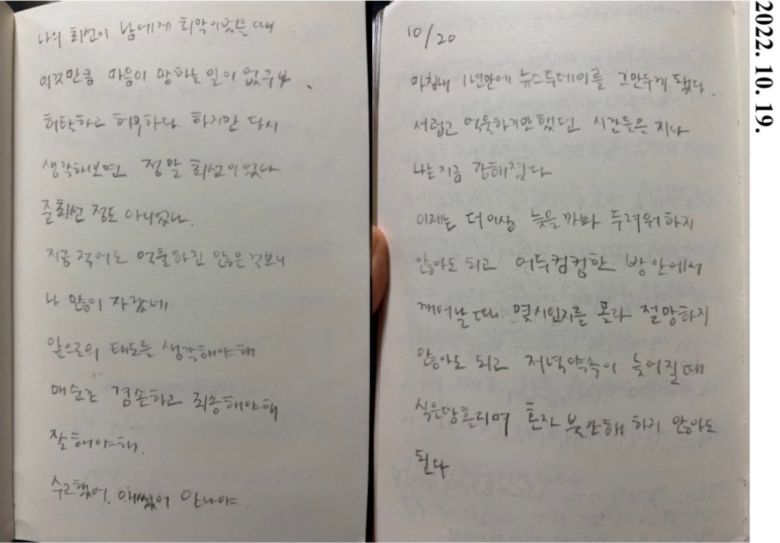 나의 최선이 남에게 최악이었을 때
이것만큼 마음이 망하는 일이 없구나.
허탈하고 허무하나 하지만 다시
생각해보면 정말 최선이었나
준최선 정도 아니었나.
지금 적어도 억울하진 않은 걸보니
나 많이 자랐네
앞으로의 태도를 생각해야해
매순간 겸손하고 최종해야해
잘해야해.
수고했어. 애썼어 안나야.
10/20
마침내 1년만에 뉴스투데이를 그만두게 됐다.
서럽고 억울하기만했던 시간들은 지나
나는 지금 강해졌다
이제는 더이상 늦을까봐 두려워하지
않아도 되고 어두컴컴한 방안에서
깨어날 때 몇시인지를 몰라 절망하지
않아도 되고 저녁약속이 늦어질때
식은땀흘리며 혼자 불안해 하지 않아도
된다
2022. 10. 19.